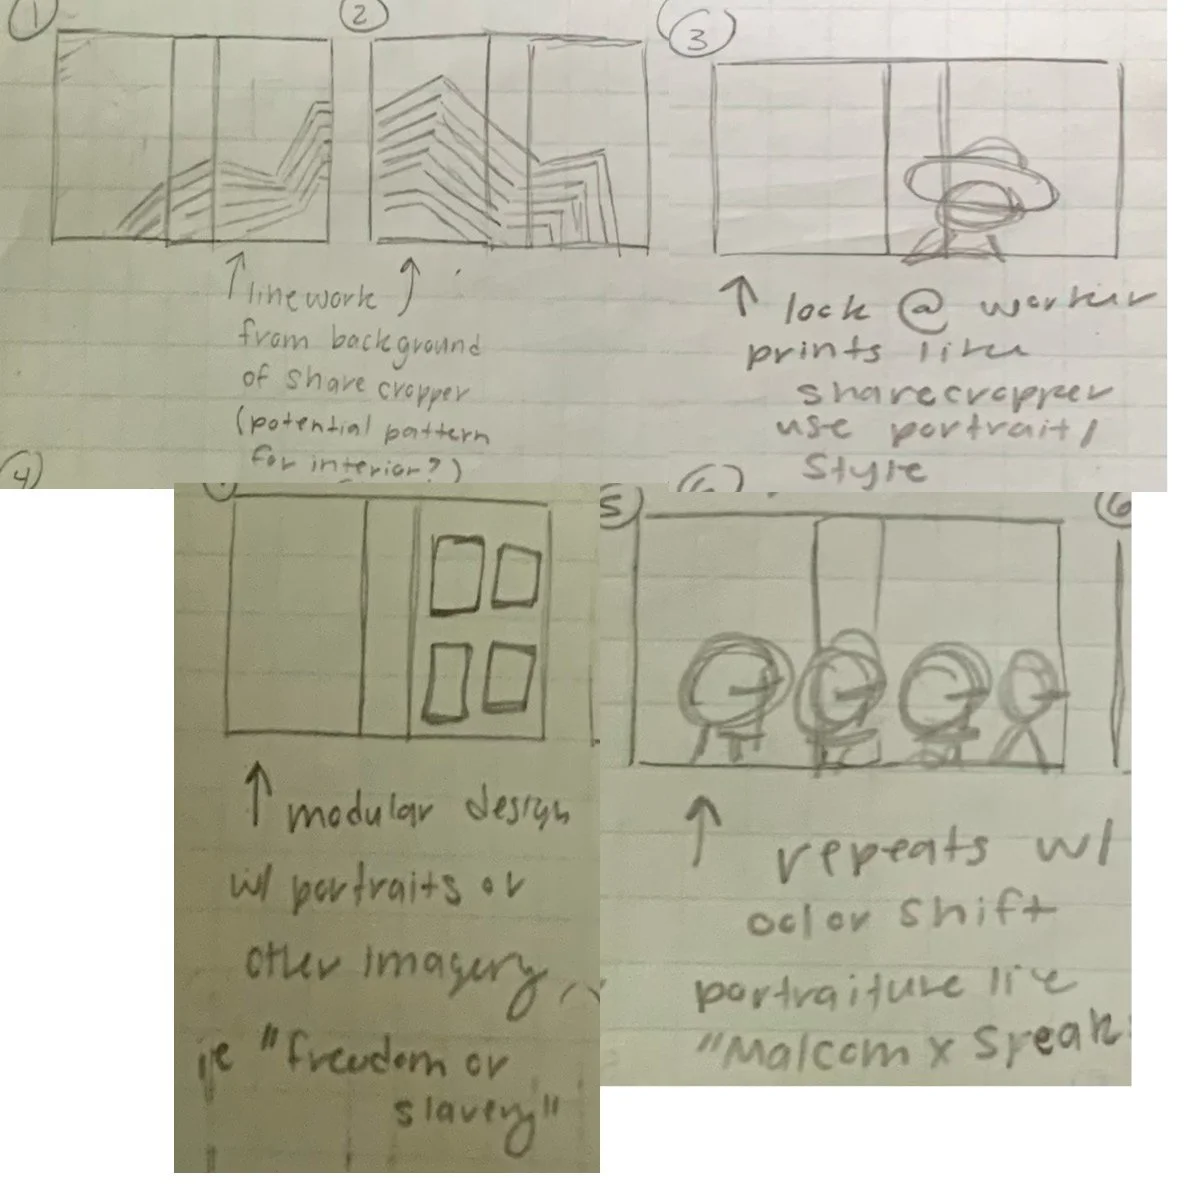 1
2
3
linework
from background
of share cropper
(potential pattern
for interior?)
look @ worker
prints like
sharecropper
use portrait/
style
4
modular design
w/ portraits or
other imagery
ie "freedom or
slavery"
5
6
repeats w/
oclor shift
portraiture like
"Malcom x Speak